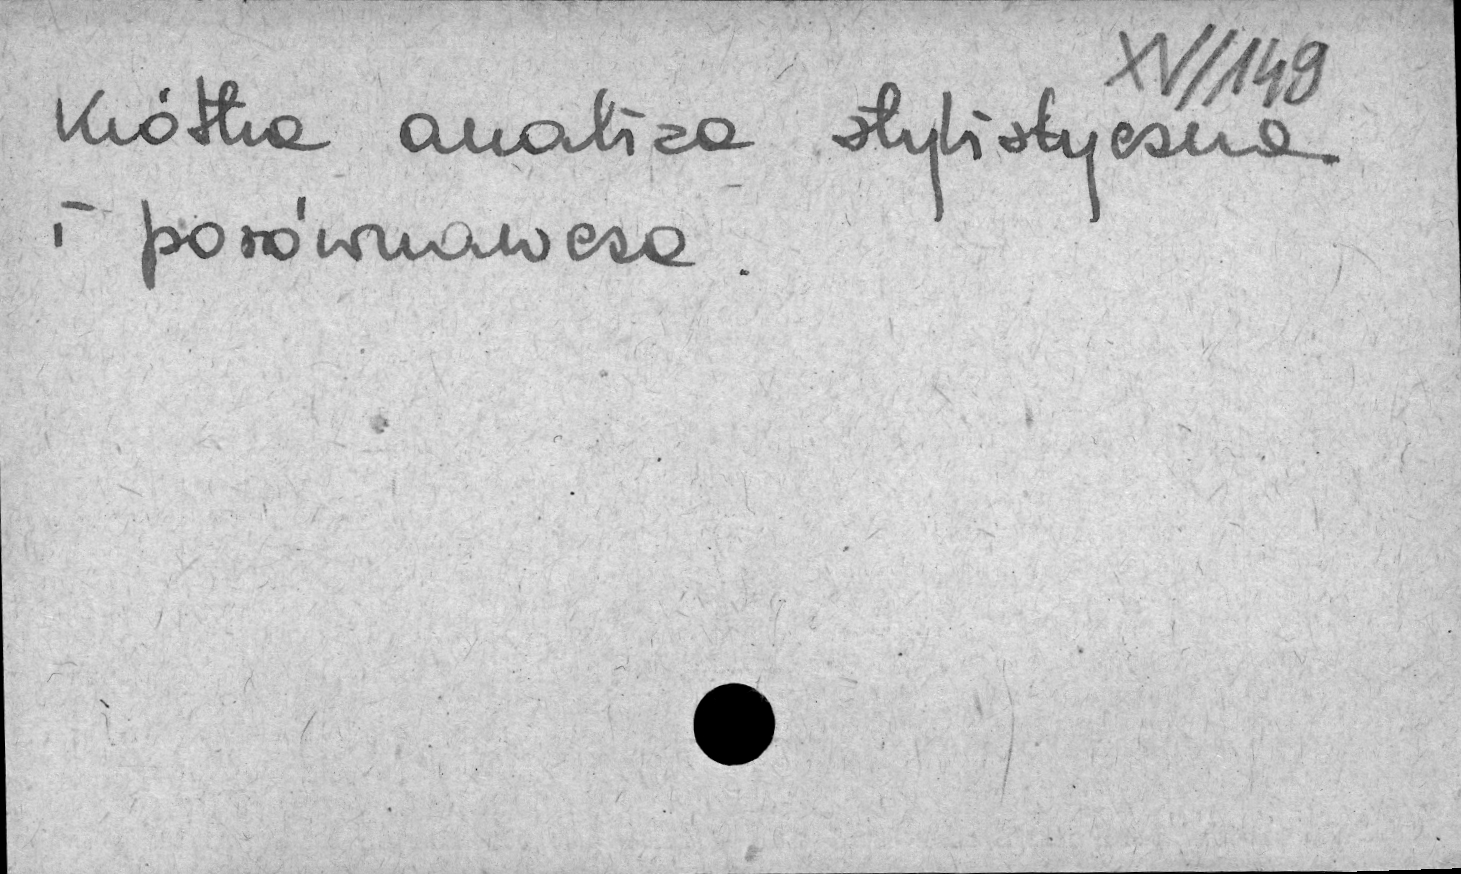 XV//149
Krótka analiza stylistyczna
i porównawcza.